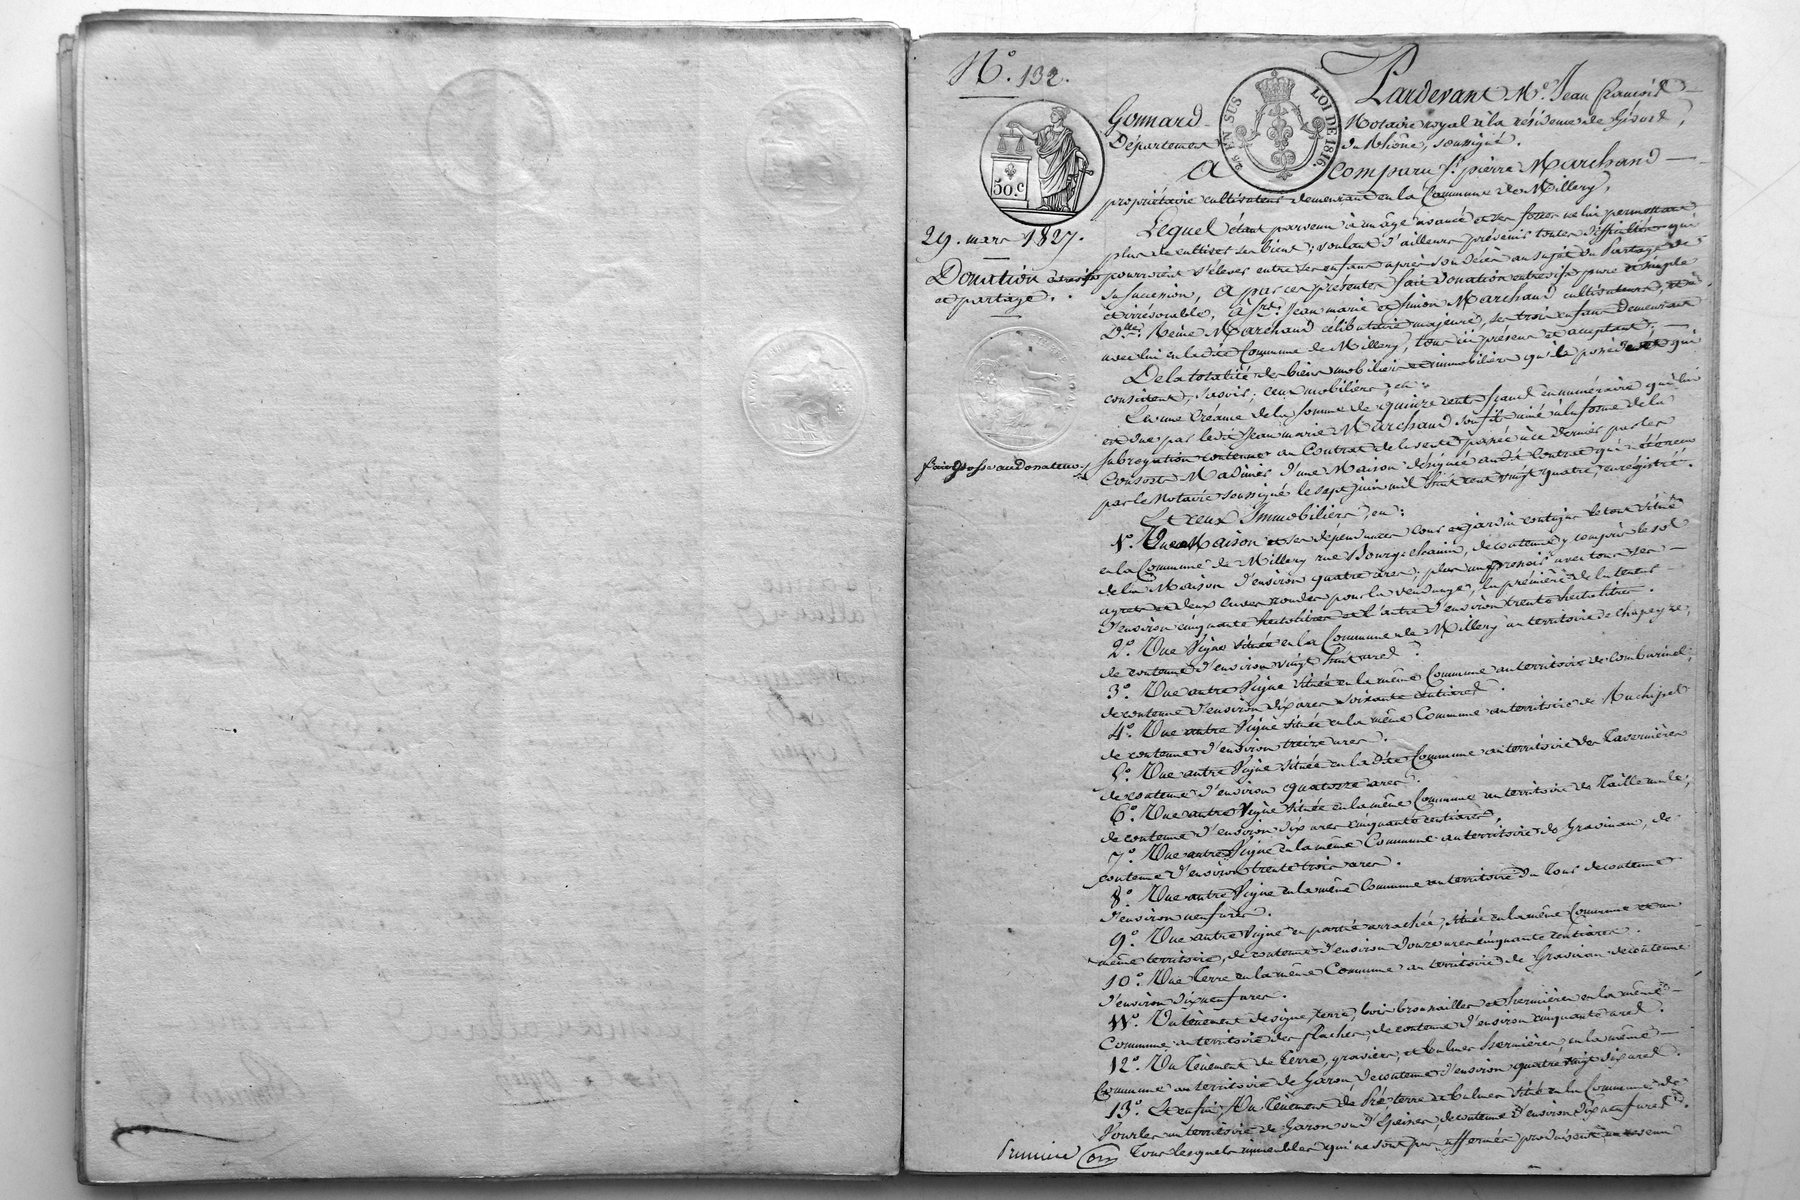 N.° 132.
50 c
25 EN SUS LOI DE 1816.
29. mars 1827.
Donation entrevifs
et partage.
fait grosse au Donateur
Pardevant M.e Jean François
Gonnard Notaire royal à la résidence de Givors,
Département du Rhône, soussigné.
A Comparu S.r pierre Marchand
propriétaire cultivateur demeurant en la Commune de Millery,
Lequel étant parvenu à un âge avancé et ses forces ne lui permettant
plus de cultiver ses biens; voulant d'ailleurs prévenir toutes difficultés qui
pourroient s'élever entre ses enfans après son décès au sujet du Partage de
sa succession, a par ces présentes fait donation entrevifs pure et simple
et irrévocable, à S.rs Jean marie et Simon Marchand cultivateurs, et à
D.elle Reine Marchand célibataire majeure, ses trois enfans demeurant
avec lui en ladite Commune de Millery, tous ici présens et acceptant;
De la totalité des biens mobiliers et immobiliers qu'il possède et qui
consistent, savoir; ceux mobiliers, en:
Une Créance de la somme de quinze cents francs en numéraire qui lui
est due par ledit Jean marie Marchand son fils ainé à la forme de la
subrogation contenue au Contrat de la vente passée à ce dernier par les
Consorts d'une Maison désignée audit Contrat qui a été reçu
par le Notaire soussigné le sept juin mil huit cent vingt quatre, enregistré.
Et ceux Immobiliers, en:
1°. Une Maison et ses dépendances cour et jardin contigus le tout situé
en la Commune de Millery rue Bourgchanin, de contenue y compris le sol
de la Maison d'environ quatre ares; plus un pressoir avec tous ses
agrès et deux cuves rondes pour la vendange, la première de la teneur
d'environ cinquante hectolitres et l'autre d'environ trente hectolitres.
2°. Une Vigne située en la Commune de Millery au territoire de chapeyze,
de contenue d'environ vingt huit ares.
3°. Une autre Vigne située en la même Commune au territoire de combarinel,
de contenue d'environ dix ares soixante centiares.
4°. Une autre Vigne située en la même Commune au territoire de Machipel
de contenue d'environ treize ares.
5°. Une autre Vigne située en ladite Commune au territoire des Tavernières
de contenue d'environ quatorze ares.
6°. Une autre Vigne située en la même Commune au territoire de Taillemule,
de contenue d'environ dix ares cinquante centiares.
7°. Une autre Vigne en la même Commune au territoire de Gravinan, de
contenue d'environ trente trois ares.
8°. Une autre Vigne en la même Commune au territoire du Tour de contenue
d'environ neuf ares.
9°. Une autre Vigne en partie arrachée, située en la même Commune et au
même territoire, de contenue d'environ douze ares cinquante centiares.
10°. Une Terre en la même Commune au territoire de Gravinan de contenue
d'environ dix neuf ares.
11°. Un tènement de vigne, terre, bois broussailles et hermières en la même
Commune au territoire des flaches, de contenue d'environ cinquante ares.
12°. Un Tènement de Terre, graviers, et balmes hermières, en la même
Commune au territoire de Garon de contenue d'environ quatre vingt dix ares.
13°. Et enfin Un Tènement de Pré terre et balmes situé en la Commune de
Vourles au territoire de Garon ou d'Épeines, de contenue d'environ dix neuf ares.
Tous lesquels immeubles qui ne sont pas affermés produisent un revenu
Première